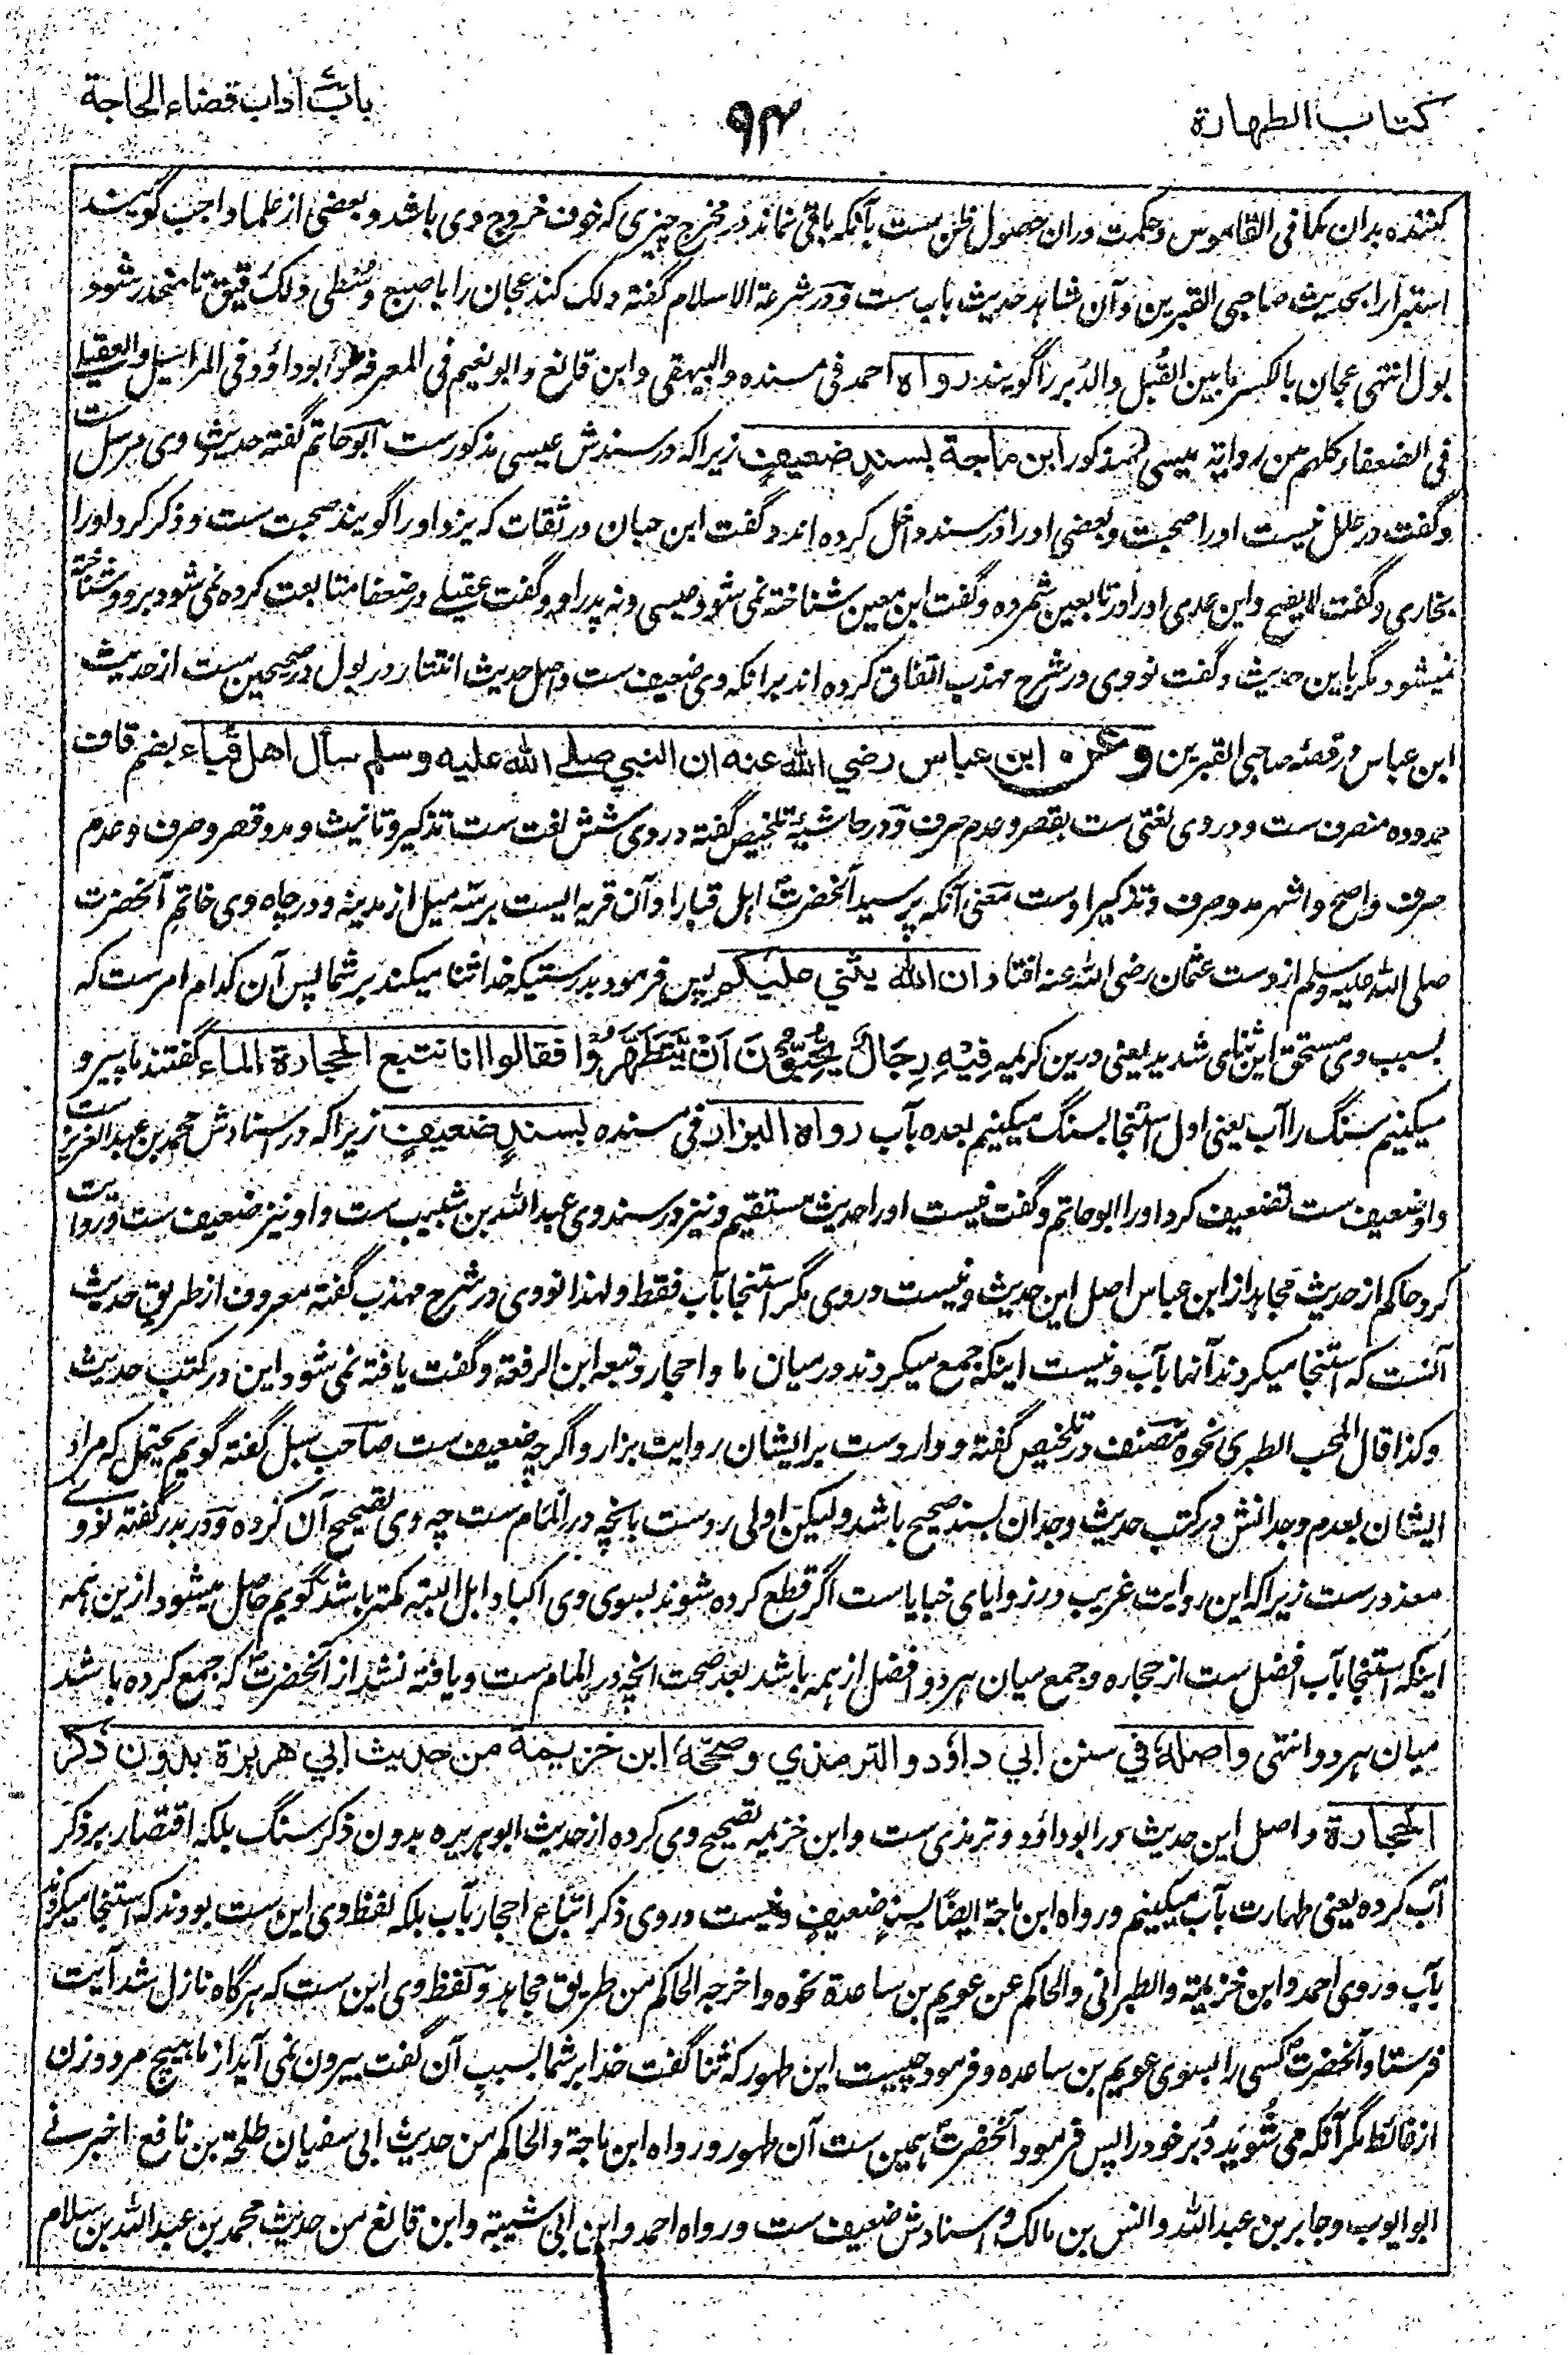 کتاب الطهارة
۹۴
باب آداب قضاء الحاجة
کننده بدان کما فی القاموس و حکمت دران حصول ظن ست بآنکه باقی نماند در مخرج چیزی که خوف خروج وی باشد و بعضی از علما واجب گویند
استبرا را بحدیث صاحبی القبرین و آن شاهد حدیث باب ست و در شرعة الاسلام گفته دلک کند عجان را باصبع وسطی دلک رقیق تا منحدر شود
بول انتهی عجان بالکسر ما بین القُبل والدُبر را گویند رواه احمد فی مسنده والبیهقی وابن قانع وابو نعیم فی المعرفة وابوداؤد فی المراسیل والعقیلے
فی الضعفاء کلهم من روایة عیسی المذکور ابن ماجة بسندٍ ضعیفٍ زیراکه در سندش عیسی مذکورست ابو حاتم گفته حدیث وی مرسل ست
و گفت در علل نیست او را صحبت و بعضی او را در مسند داخل کرده اند و گفت ابن حبان در ثقات که یزداد را گویند صحبت ست و ذکر کرد او را
بخاری و گفت لا یصح وابن عدی او را در تابعین شمرده و گفت ابن معین شناخته نمی شود عیسی و نه پدر او و گفت عقیلے در ضعفا متابعت کرده نمی شود برو و شناخته
نمیشود مگر باین حدیث و گفت نووی در شرح مهذب اتفاق کرده اند برانکه وی ضعیف ست و اصل حدیث انتثار در بول در صحیحین ست از حدیث
ابن عباس در قصهٔ صاحبی القبرین وعن ابن عباس رضي الله عنه ان النبي صلے الله علیه وسلم سأل اهل قُباء بضم قاف
ممدوده منصرف ست و در وی لغتی ست بقصر و عدم صرف و در حاشیهٔ تلخیص گفته در وی شش لغت ست تذکیر و تانیث و مد و قصر و صرف و عدم
صرف واصح واشهر مد و صرف و تذکیر اوست معنی آنکه پرسید آنحضرت اهل قبا را و آن قریه ایست بر سه میل از مدینه و در چاه وی خاتم آنحضرت
صلی الله علیه وسلم از دست عثمان رضی الله عنه افتاد ان الله یثني علیکم پس فرمود بدرستیکه خدا ثنا میکند بر شما پس آن کدام امرست که
بسبب وی مستحق این ثنای شدید یعنی درین کریمه فِیْهِ رِجَالٌ یُحِبُّوْنَ اَنْ یَّتَطَهَّرُوْا فقالوا انا نتبع الحجارة الماء گفتند ما پیرو
میکنیم سنگ را آب یعنی اول استنجا بسنگ میکنیم بعده بآب رواه البزار فی مسنده بسندٍ ضعیفٍ زیراکه در اسنادش محمد بن عبدالعزیز ست
و او ضعیف ست تضعیف کرد او را ابوحاتم و گفت نیست او را حدیث مستقیم و نیز در سند وی عبدالله بن شبیب ست و او نیز ضعیف ست و روایت
کرد حاکم از حدیث مجاهد از ابن عباس اصل این حدیث و نیست در وی مگر استنجا بآب فقط و لهذا نووی در شرح مهذب گفته معروف از طریق حدیث
آنست که استنجا میکردند آنها بآب و نیست اینکه جمع میکردند در میان ما و احجار و تبعه ابن الرفعة و گفت یافته نمی شود این در کتب حدیث
وکذا قال المحب الطبری نحوه مصنف در تلخیص گفته و واردست بر ایشان روایت بزار و اگرچه ضعیف ست صاحب سبل گفته گویم یحتمل که مراد
ایشان بعدم وجدانش در کتب حدیث وجدان بسند صحیح باشد ولیکن اولی ردست بانچه در المام ست چه وی تصحیح آن کرده و در بدر گفته نووے
معذورست زیراکه این روایت غریب در زوایای خبایاست اگر قطع کرده شوند بسوی وی اکباد ابل البته کمتر باشد گویم حاصل میشود ازین همه
اینکه استنجا بآب افضل ست از حجاره و جمع میان هر دو افضل از همه باشد بعد صحت انچه در المام ست و یافته نشد از آنحضرت که جمع کرده باشد
میان هر دو انتهی واصله في سنن ابي داؤد والترمذي وصححه ابن خزیمة من حدیث ابي هریرة بدون ذکر
الحجارة و اصل این حدیث در ابوداؤد و ترمذی ست و ابن خزیمه تصحیح وی کرده از حدیث ابو هریره بدون ذکر سنگ بلکه اقتصار بر ذکر
آب کرده یعنی طهارت بآب میکنیم و رواه ابن ماجة ایضًا بسندٍ ضعیفٍ و نیست در وی ذکر اتباع احجار بآب بلکه لفظ وی این ست بودند که استنجا میکردند
بآب و روی احمد وابن خزیمة والطبرانی والحاکم عن عویم بن ساعدة نحوه واخرجه الحاکم من طریق مجاهد و لفظ وی این ست که هرگاه نازل شد آیت
فرستاد آنحضرت کسی را بسوی عویم بن ساعده و فرمود چیست این طهور که ثنا گفت خدا بر شما بسبب آن گفت بیرون نمی آید از ما هیچ مرد و زن
از غائط مگر آنکه می شُوید دُبر خود را پس فرمود آنحضرت همین ست آن طهور و رواه ابن ماجة والحاکم من حدیث ابی سفیان طلحة بن نافع اخبرنے
ابو ایوب وجابر بن عبدالله وانس بن مالک و اسنادش ضعیف ست و رواه احمد وابن ابی شیبة وابن قانع من حدیث محمد بن عبدالله بن سلام